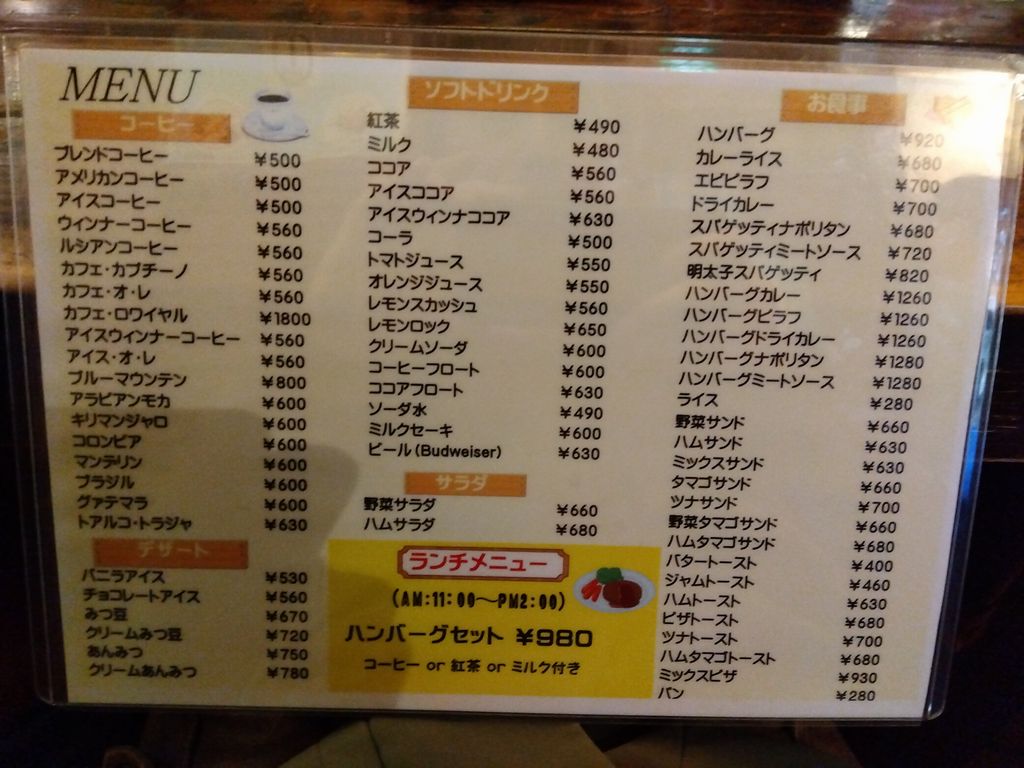 MENU
コーヒー
ブレンドコーヒー ¥500
アメリカンコーヒー ¥500
アイスコーヒー ¥500
ウィンナーコーヒー ¥560
ルシアンコーヒー ¥560
カフェ・カプチーノ ¥560
カフェ・オ・レ ¥560
カフェ・ロワイヤル ¥1800
アイスウィンナーコーヒー ¥560
アイス・オ・レ ¥560
ブルーマウンテン ¥800
アラビアンモカ ¥600
キリマンジャロ ¥600
コロンビア ¥600
マンデリン ¥600
ブラジル ¥600
グァテマラ ¥600
トアルコ・トラジャ ¥630
デザート
バニラアイス ¥530
チョコレートアイス ¥560
みつ豆 ¥670
クリームみつ豆 ¥720
あんみつ ¥750
クリームあんみつ ¥780
ソフトドリンク
紅茶 ¥490
ミルク ¥480
ココア ¥560
アイスココア ¥560
アイスウィンナココア ¥630
コーラ ¥500
トマトジュース ¥550
オレンジジュース ¥550
レモンスカッシュ ¥560
レモンロック ¥650
クリームソーダ ¥600
コーヒーフロート ¥600
ココアフロート ¥630
ソーダ水 ¥490
ミルクセーキ ¥600
ビール(Budweiser) ¥630
サラダ
野菜サラダ ¥660
ハムサラダ ¥680
ランチメニュー
(AM:11:00〜PM2:00)
ハンバーグセット ¥980
コーヒー or 紅茶 or ミルク付き
お食事
ハンバーグ ¥920
カレーライス ¥680
エビピラフ ¥700
ドライカレー ¥700
スパゲッティナポリタン ¥680
スパゲッティミートソース ¥720
明太子スパゲッティ ¥820
ハンバーグカレー ¥1260
ハンバーグピラフ ¥1260
ハンバーグドライカレー ¥1260
ハンバーグナポリタン ¥1280
ハンバーグミートソース ¥1280
ライス ¥280
野菜サンド ¥660
ハムサンド ¥630
ミックスサンド ¥630
タマゴサンド ¥660
ツナサンド ¥700
野菜タマゴサンド ¥660
ハムタマゴサンド ¥680
バタートースト ¥400
ジャムトースト ¥460
ハムトースト ¥630
ピザトースト ¥680
ツナトースト ¥700
ハムタマゴトースト ¥680
ミックスピザ ¥930
パン ¥280